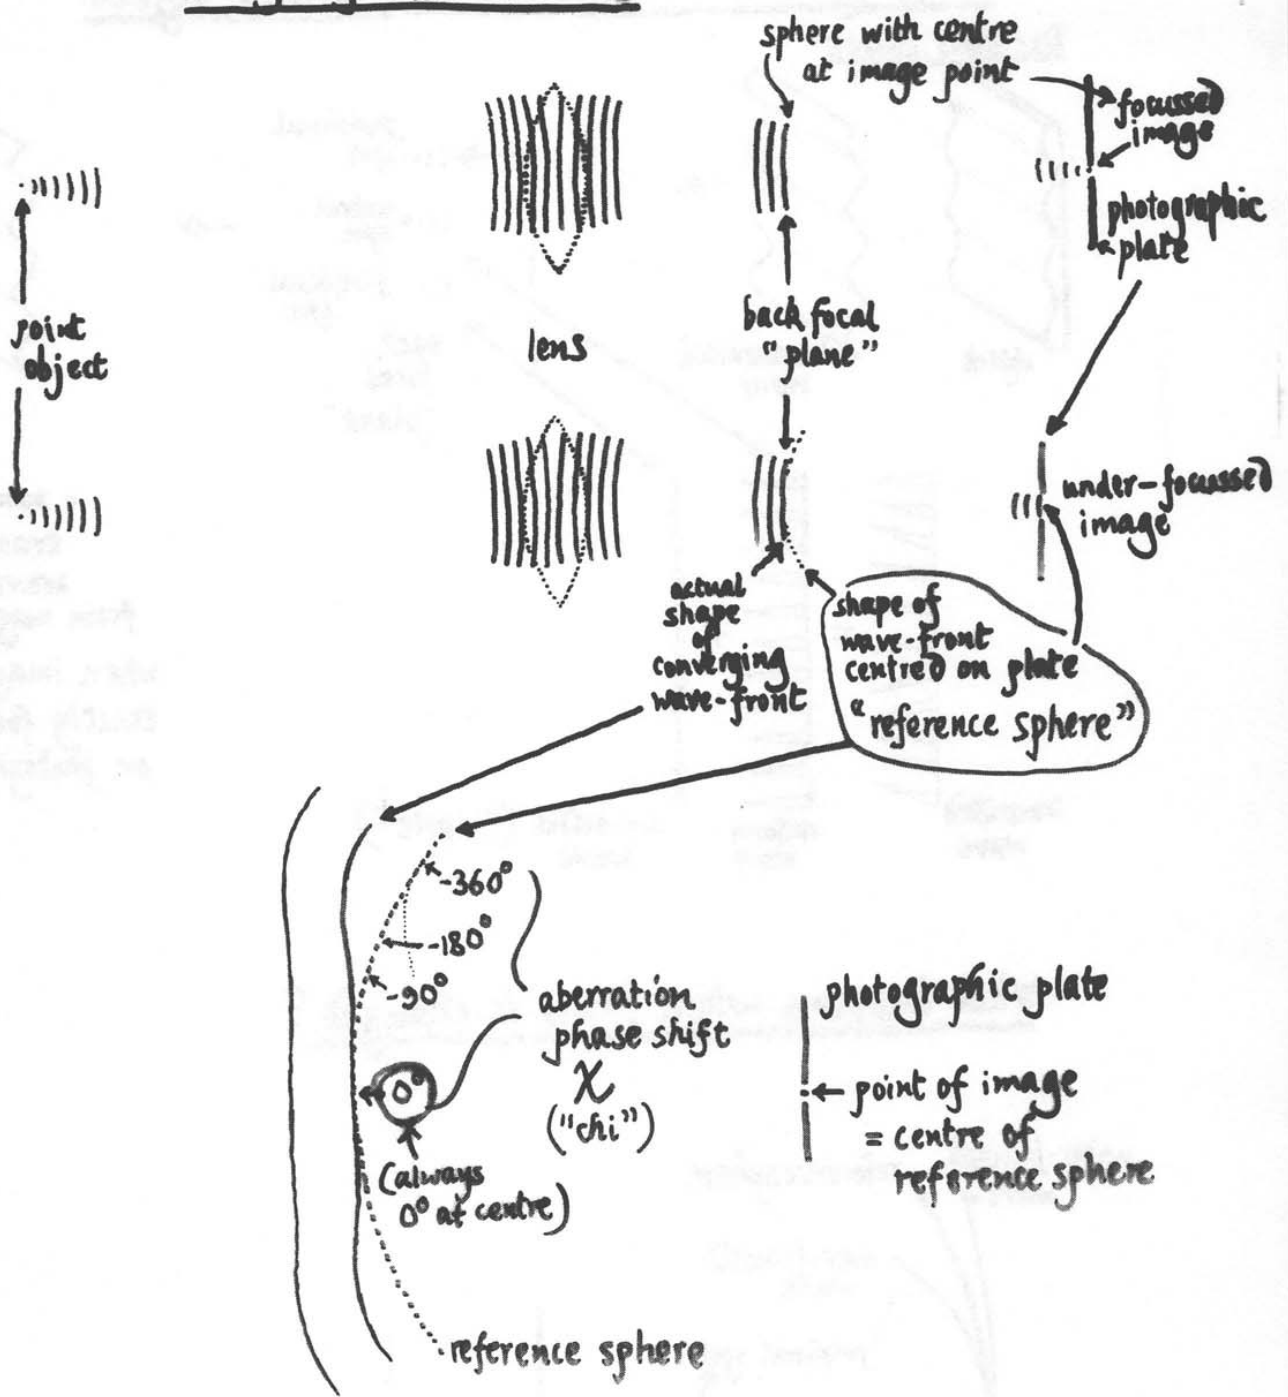 sphere with centre
at image point
focussed
image
photographic
plate
point
object
lens
back focal
"plane"
under-focussed
image
actual
shape
of
converging
wave-front
shape of
wave-front
centred on plate
"reference sphere"
-360°
-180°
-90°
0°
(always
0° at centre)
aberration
phase shift
χ
("chi")
photographic plate
point of image
= centre of
reference sphere
reference sphere